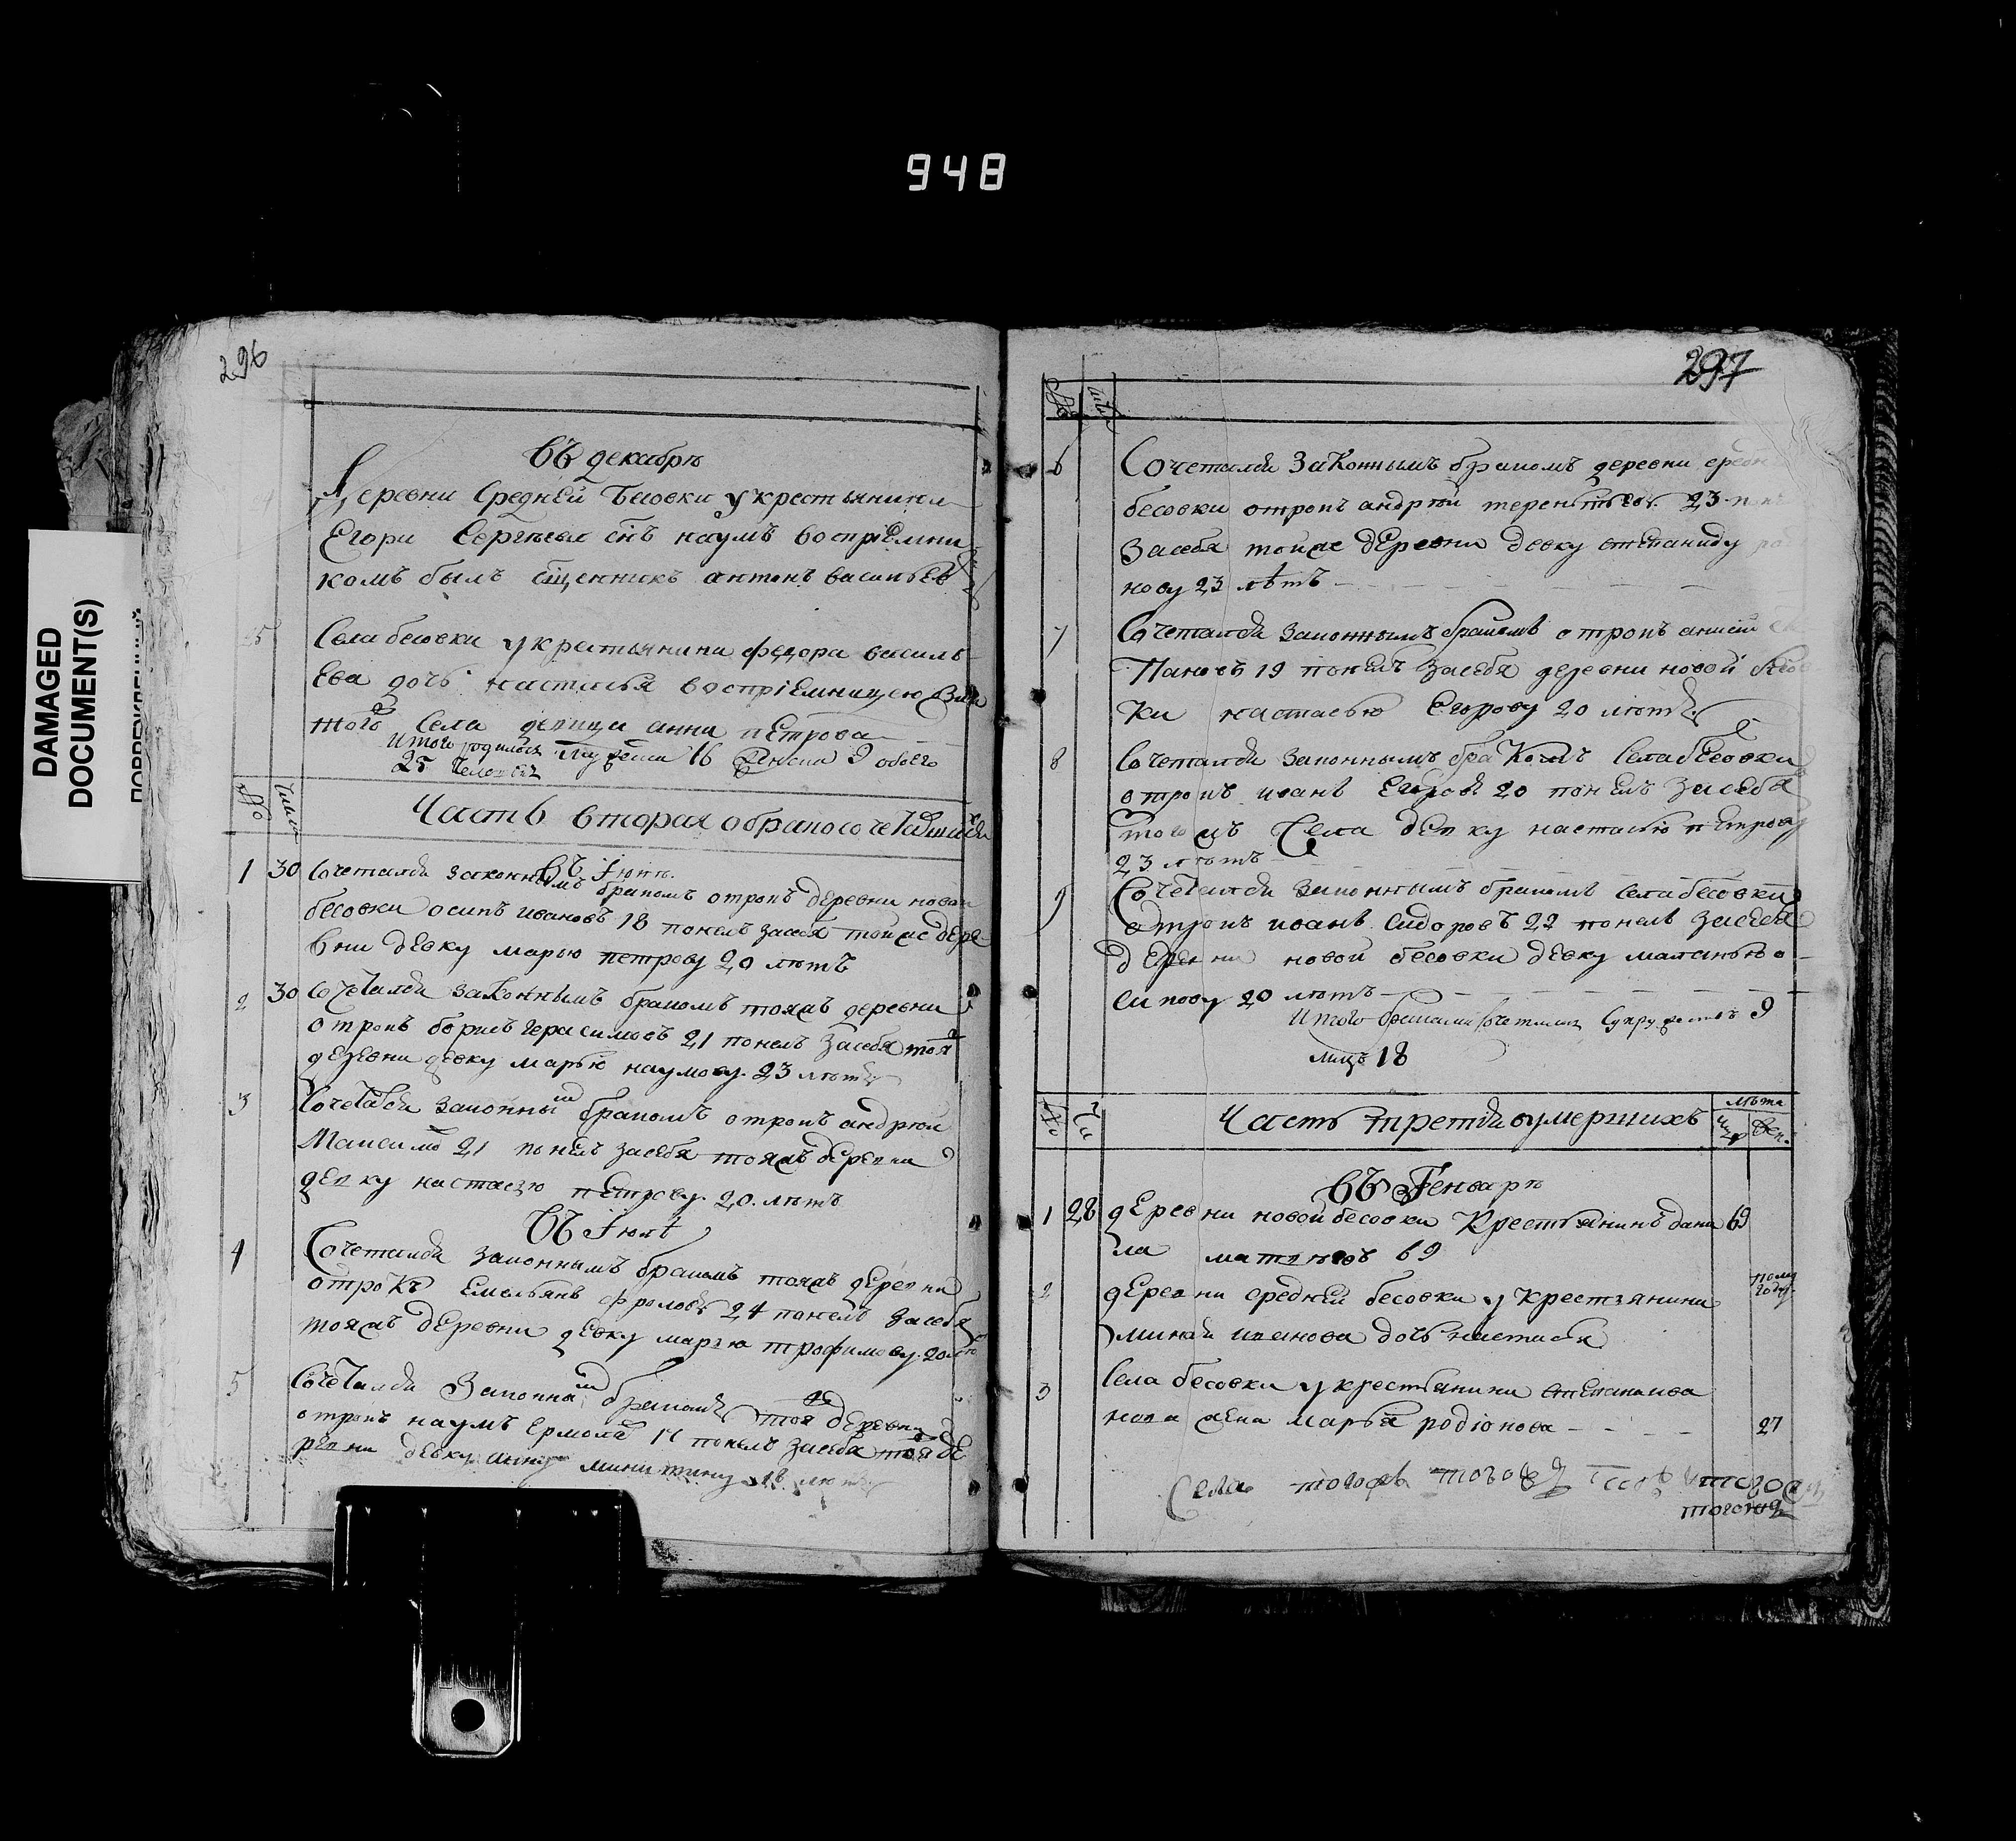 948
DAMAGED
DOCUMENT(S)
296
въ декабрѣ
Деревни Средней Бесовки у крестьянина
Егора Сергѣева снъ наумъ воспрiемни
комъ былъ сщенникъ антонъ васильевъ
25 Села бесовки у крестьянина федора василь
Ева дочь настасья воспрiемницею была
того села девица анна петрова
Итого родилось мужеска 16 женска 9 обоего
25 человекъ
№ число
Часть вторая о бракосочетавшихся
въ Iюнѣ
1 30 Сочетался законнымъ бракомъ отрокъ деревни новой
бесовки осипъ ивановъ 18 понелъ засебя тойже дере
вни девку марью петрову 20 лѣтъ
2 30 Сочетался законнымъ бракомъ тояжъ деревни
отрокъ борисъ герасимовъ 21 понелъ засебя тоя
деревни девку марью наумову 23 лѣтъ
3 Сочетался законны бракомъ отрокъ андрѣй
Максимо 21 понелъ засебя тояжъ деревни
девку настасью петрову 20 лѣтъ
въ Iюлѣ
4 Сочетался законнымъ бракомъ тояжъ деревни
отрокъ Емельянъ фроловъ 24 понелъ засебя
тояжъ деревни девку марью трофимову 20
5 Сочетался законны бракомъ тоя деревни
отрокъ наумъ ермола понелъ засебя тоя де
ревни девку 18 лѣтъ
297
6 Сочетался законнымъ бракомъ деревни средн
бесовки отрокъ андрѣй терентьевъ 23
засебя тойже деревни девку степаниду
нову 23 лѣтъ
7 Сочетался законнымъ бракомъ отрокъ
пановъ 19 понелъ засебя деревни новой бесо
ки настасью Егорову 20 лѣтъ
8 Сочетался законнымъ бракомъ села бесовки
отрокъ иванъ Егоровъ 20 понелъ засебя
того жъ села девку настасью петрову
23 лѣтъ
9 Сочетался законнымъ бракомъ села бесовки
отрокъ иванъ сидоровъ 22 понелъ засебя
деревни новой бесовки девку маланью о
сипову 20 лѣтъ
Итого браками сочеталися супружествъ 9
лицъ 18
Часть третiя о умершихъ
лѣта
въ Генварѣ
1 28 деревни новой бесовки крестьянинъ дани 69
ла матвѣевъ 69
2 деревни средней бесовки у крестьянина полу
году
миная иванова дочь настасья
3 Села бесовки у крестьянина степана ива
нова жена марья родiонова 27
Села тогожъ